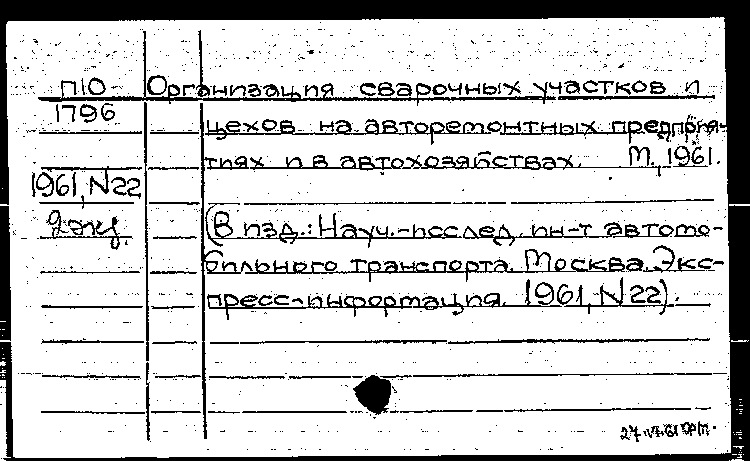 П10 Организация сварочных участков и
1796 цехов на авторемонтных предприя-
тиях и в автохозяйствах. М., 1961.
1961, N22
2 экз. (В изд.: Науч.-исслед. ин-т автомо-
бильного транспорта. Москва. Экс-
пресс-информация. 1961, N22).
27.VI.61